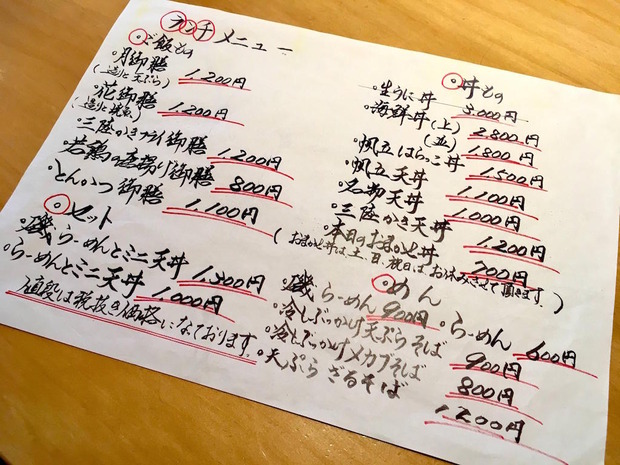 ランチメニュー
ご飯もの
・月御膳 1,200円
(造りと天ぷら)
・花御膳 1,200円
(造りと焼魚)
・三陸かきフライ御膳 1,200円
・若鶏の唐揚げ御膳 800円
・とんかつ御膳 1,100円
セット
・磯らーめんとミニ天丼 1,300円
・らーめんとミニ天丼 1,000円
値段は税抜き価格になっております。
丼もの
・生うに丼 3,000円
・海鮮丼(上) 2,800円
(並) 1,800円
・帆立はらっこ丼 1,500円
・帆立天丼 1,100円
・名物天丼 1,000円
・三陸かき天丼 1,200円
・本日のおまかせ丼 700円
(おまかせ丼は土、日、祝日はお休みさせて頂きます。)
めん
・磯らーめん 900円 ・らーめん 600円
・冷しぶっかけ天ぷらそば 900円
・冷しぶっかけメカブそば 800円
・天ぷらざるそば 1,200円